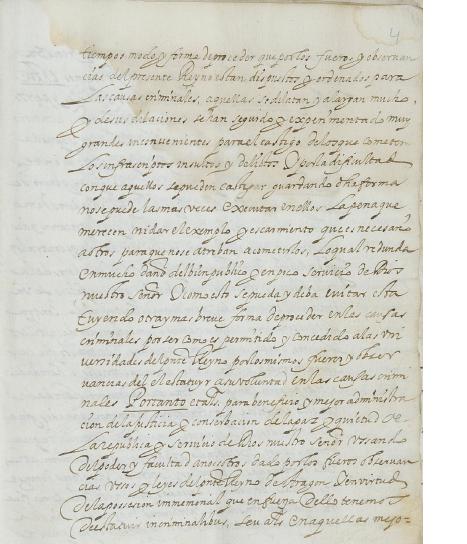 4
tiempos modo y forma de proceder que por los fueros y observan
cias del presente Reyno estan dispuestos y ordenados para
las causas criminales, aquellas se dilatan y alargan mucho
y de sus dilaciones se han seguido y experimentado muy
grandes inconvenientes para el castigo de los que cometen
los infrascriptos insultos y delictos Y por la dificultad
con que aquellos se pueden castigar guardando dha forma
no se puede las mas veces executar en ellos la pena que
merecen ni dar el exemplo y escarmiento que es necesario
a otros para que no se atreban a cometerlos, lo qual redunda
en mucho daño del bien publico y en poco servicio de Dios
nuestro señor Y como esto se pueda y deba evitar esta
tuyendo otra y mas breve forma de proceder en las causas
criminales por ser como es permitido y concedido a las vni
versidades del pnte Reyno por los mismos fueros y obser
vancias del el estatuyr a su voluntad en las causas crimi
nales Portanto et als. para beneficio y mejor administra
cion de la justicia y conserbacion de la paz y quietud de
la republica y servicio de Dios nuestro señor Vsando
del poder y facultad a nosotros dado por los fueros observan
cias vsos y leyes del pnte Reyno de Aragon Y en virtud
de la possession immemorial que en fuerza dello tenemos
de estatuir in criminalibus, seu als en aquellas mejo-